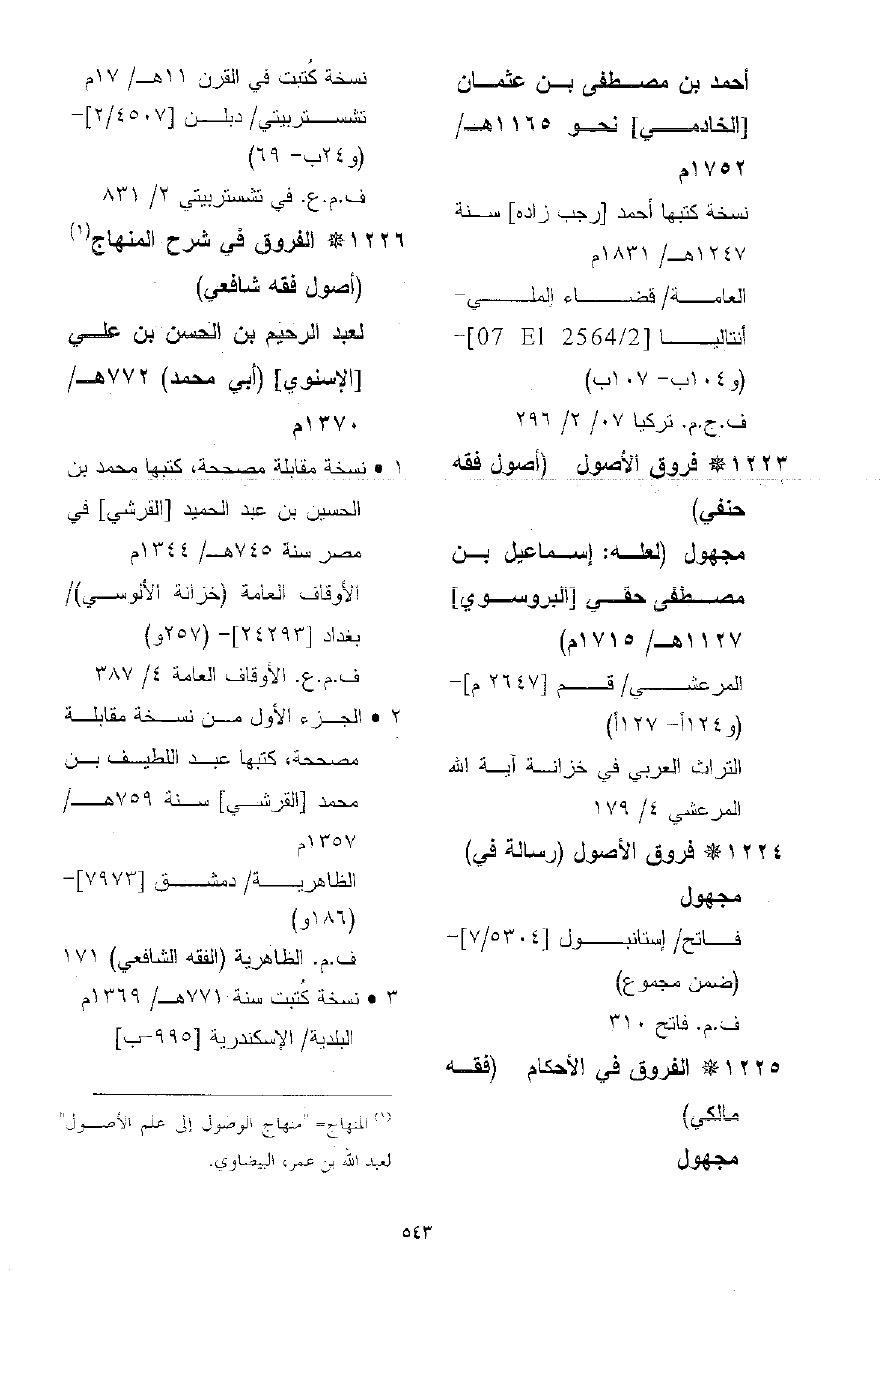 أحمد بن مصطفى بن عثمان
[الخادمي] نحو ١١٦٥هـ/
١٧٥٢م
نسخة كتبها أحمد [رجب زاده] سنة
١٢٤٧هـ/ ١٨٣١م
العامة/ قضاء إلملي-
أنتاليا [07 El 2564/2]-
(و١٠٤ب- ١٠٧ب)
ف.ج.م. تركيا ٠٧/ ٢/ ٢٩٦
١٢٢٣* فروق الأصول (أصول فقه
حنفي)
مجهول (لعله: إسماعيل بن
مصطفى حقي [البروسوي]
١١٢٧هـ/ ١٧١٥م)
المرعشي/ قم [٢٦٤٧ م]-
(و١٢٤أ- ١٢٧أ)
التراث العربي في خزانة آية الله
المرعشي ٤/ ١٧٩
١٢٢٤* فروق الأصول (رسالة في)
مجهول
فاتح/ إستانبول [٧/٥٣٠٤]-
(ضمن مجموع)
ف.م. فاتح ٣١٠
١٢٢٥* الفروق في الأحكام (فقه
مالكي)
مجهول
نسخة كُتبت في القرن ١١هـ/ ١٧م
تشستربيتي/ دبلن [٢/٤٥٠٧]-
(و٢٤ب- ٦٩)
ف.م.ع. في تشستربيتي ٢/ ٨٣١
١٢٢٦* الفروق في شرح المنهاج(١)
(أصول فقه شافعي)
لعبد الرحيم بن الحسن بن علي
[الإسنوي] (أبي محمد) ٧٧٢هـ/
١٣٧٠م
١ • نسخة مقابلة مصححة، كتبها محمد بن
الحسين بن عبد الحميد [القرشي] في
مصر سنة ٧٤٥هـ/ ١٣٤٤م
الأوقاف العامة (خزانة الألوسي)/
بغداد [٢٤٢٩٣]- (٢٥٧و)
ف.م.ع. الأوقاف العامة ٤/ ٣٨٧
٢ • الجزء الأول من نسخة مقابلة
مصححة، كتبها عبد اللطيف بن
محمد [القرشي] سنة ٧٥٩هـ/
١٣٥٧م
الظاهرية/ دمشق [٧٩٧٣]-
(١٨٦و)
ف.م. الظاهرية (الفقه الشافعي) ١٧١
٣ • نسخة كُتبت سنة ٧٧١هـ/ ١٣٦٩م
البلدية/ الإسكندرية [٩٩٥-ب]
(١) المنهاج= "منهاج الوصول إلى علم الأصول"
لعبد الله بن عمر، البيضاوي.
٥٤٣